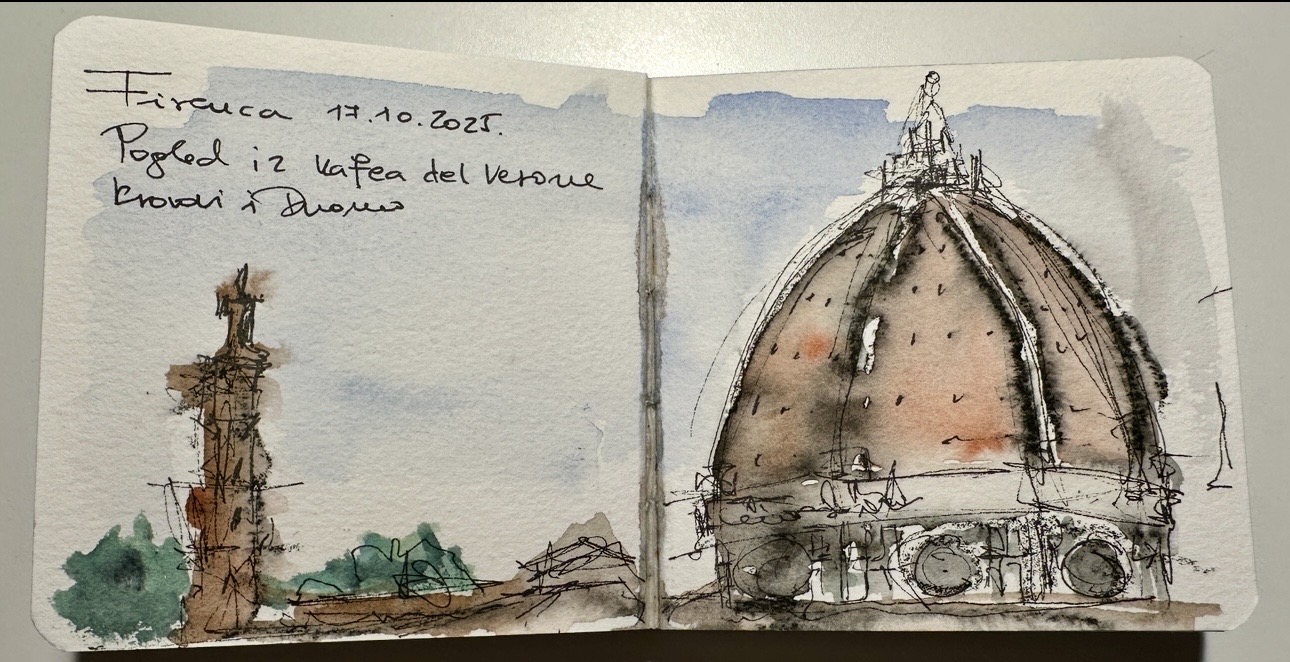 Firenca 17.10.2025.
Pogled iz kafea del Verone
krovovi i Duomo